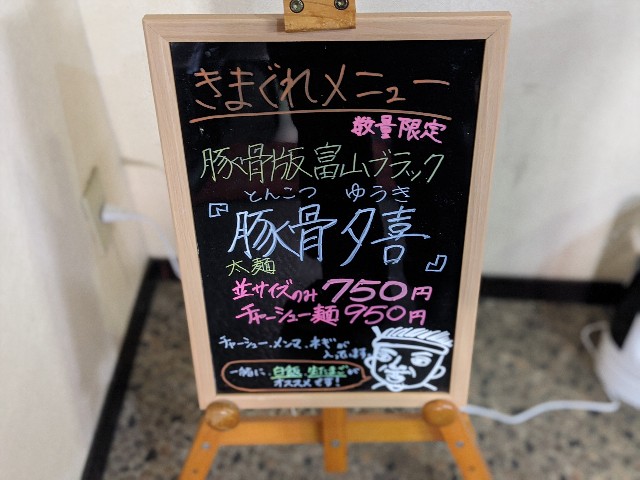 きまぐれメニュー
数量限定
豚骨版富山ブラック
とんこつ ゆうき
『豚骨夕喜』
太麺
並サイズのみ 750円
チャーシュー麺 950円
チャーシュー、メンマ、ネギが
入ってます
一緒に、白飯、生たまごが
オススメです!